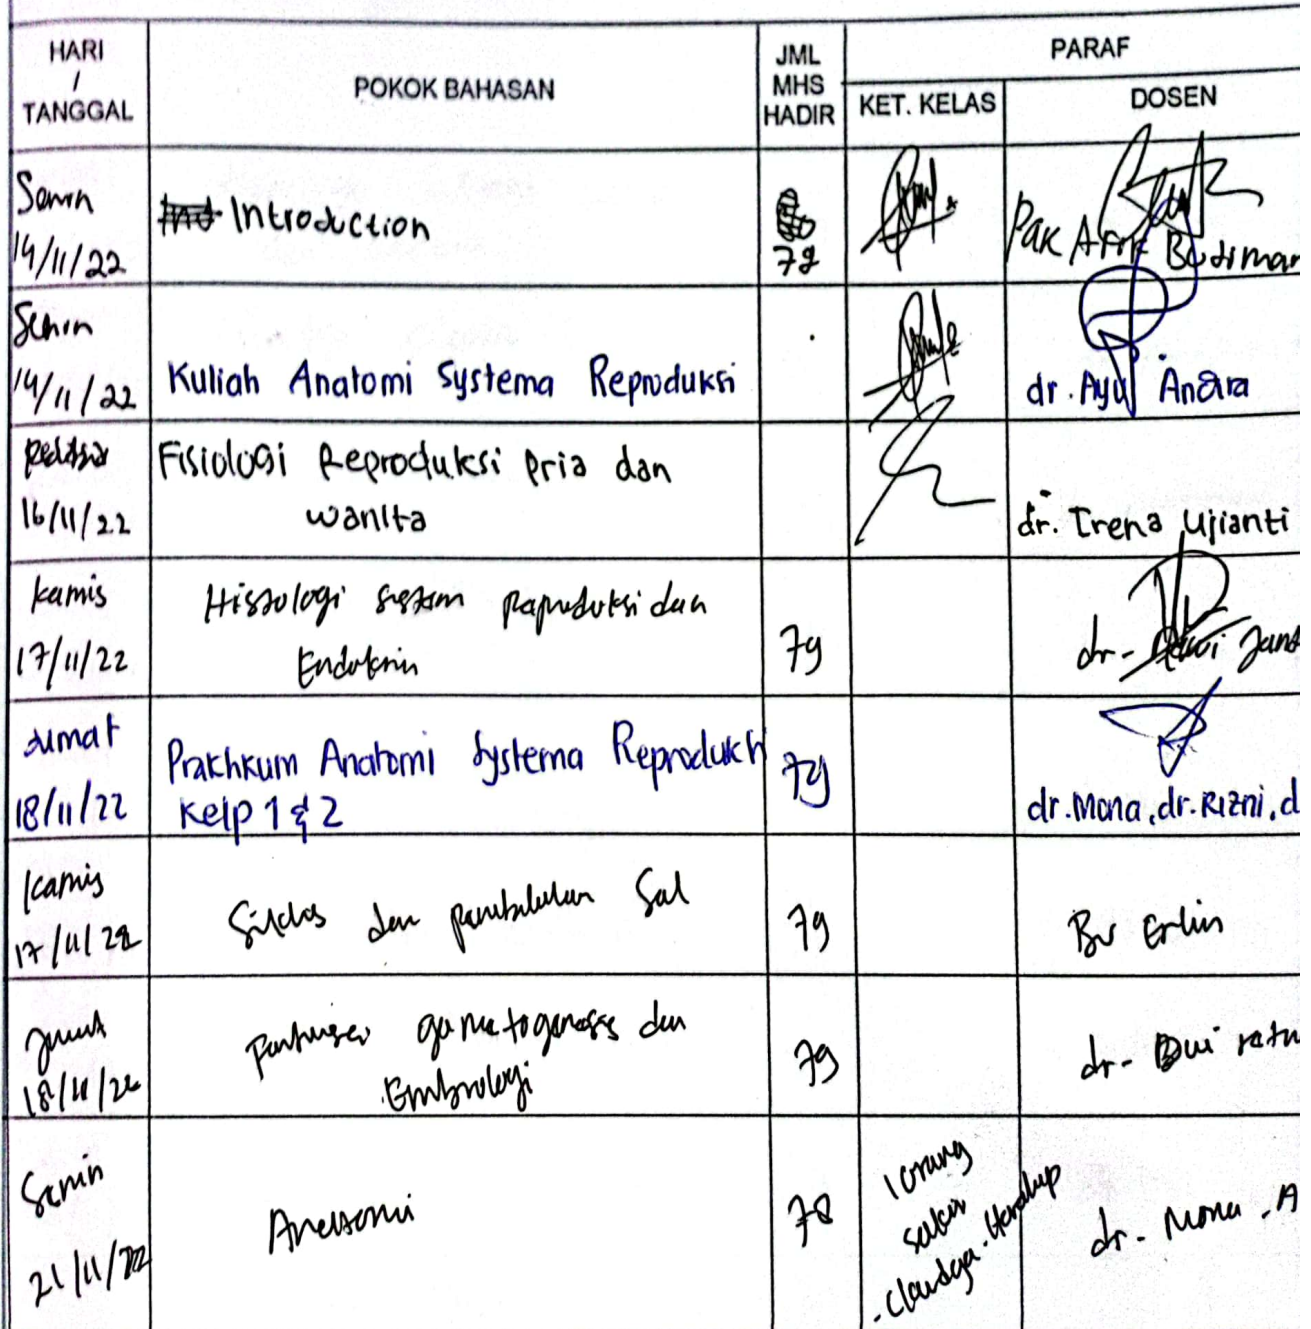 HARI
/
TANGGAL
POKOK BAHASAN
JML
MHS
HADIR
PARAF
KET. KELAS
DOSEN
Senin
14/11/22
Introduction
79
Pak Afif Budiman
Senin
14/11/22
Kuliah Anatomi Systema Reproduksi
dr. Ayu Andira
16/11/22
Fisiologi Reproduksi pria dan
wanita
dr. Irena Ujianti
kamis
17/11/22
Histologi sistem Reproduksi dan
Endokrin
79
dr- Dewi
Jumat
18/11/22
Praktikum Anatomi Systema Reproduksi
Kelp 1 & 2
79
dr. Mona, dr. Rizni, d
Kamis
17/11/22
Siklus dan pembelahan Sel
79
Bu Erlin
Jumat
18/11/22
gametogenesis dan
Embrologi
79
dr- Dwi ratn
Senin
21/11/22
Anatomi
78
1 orang
sakit
dr. Mona . A